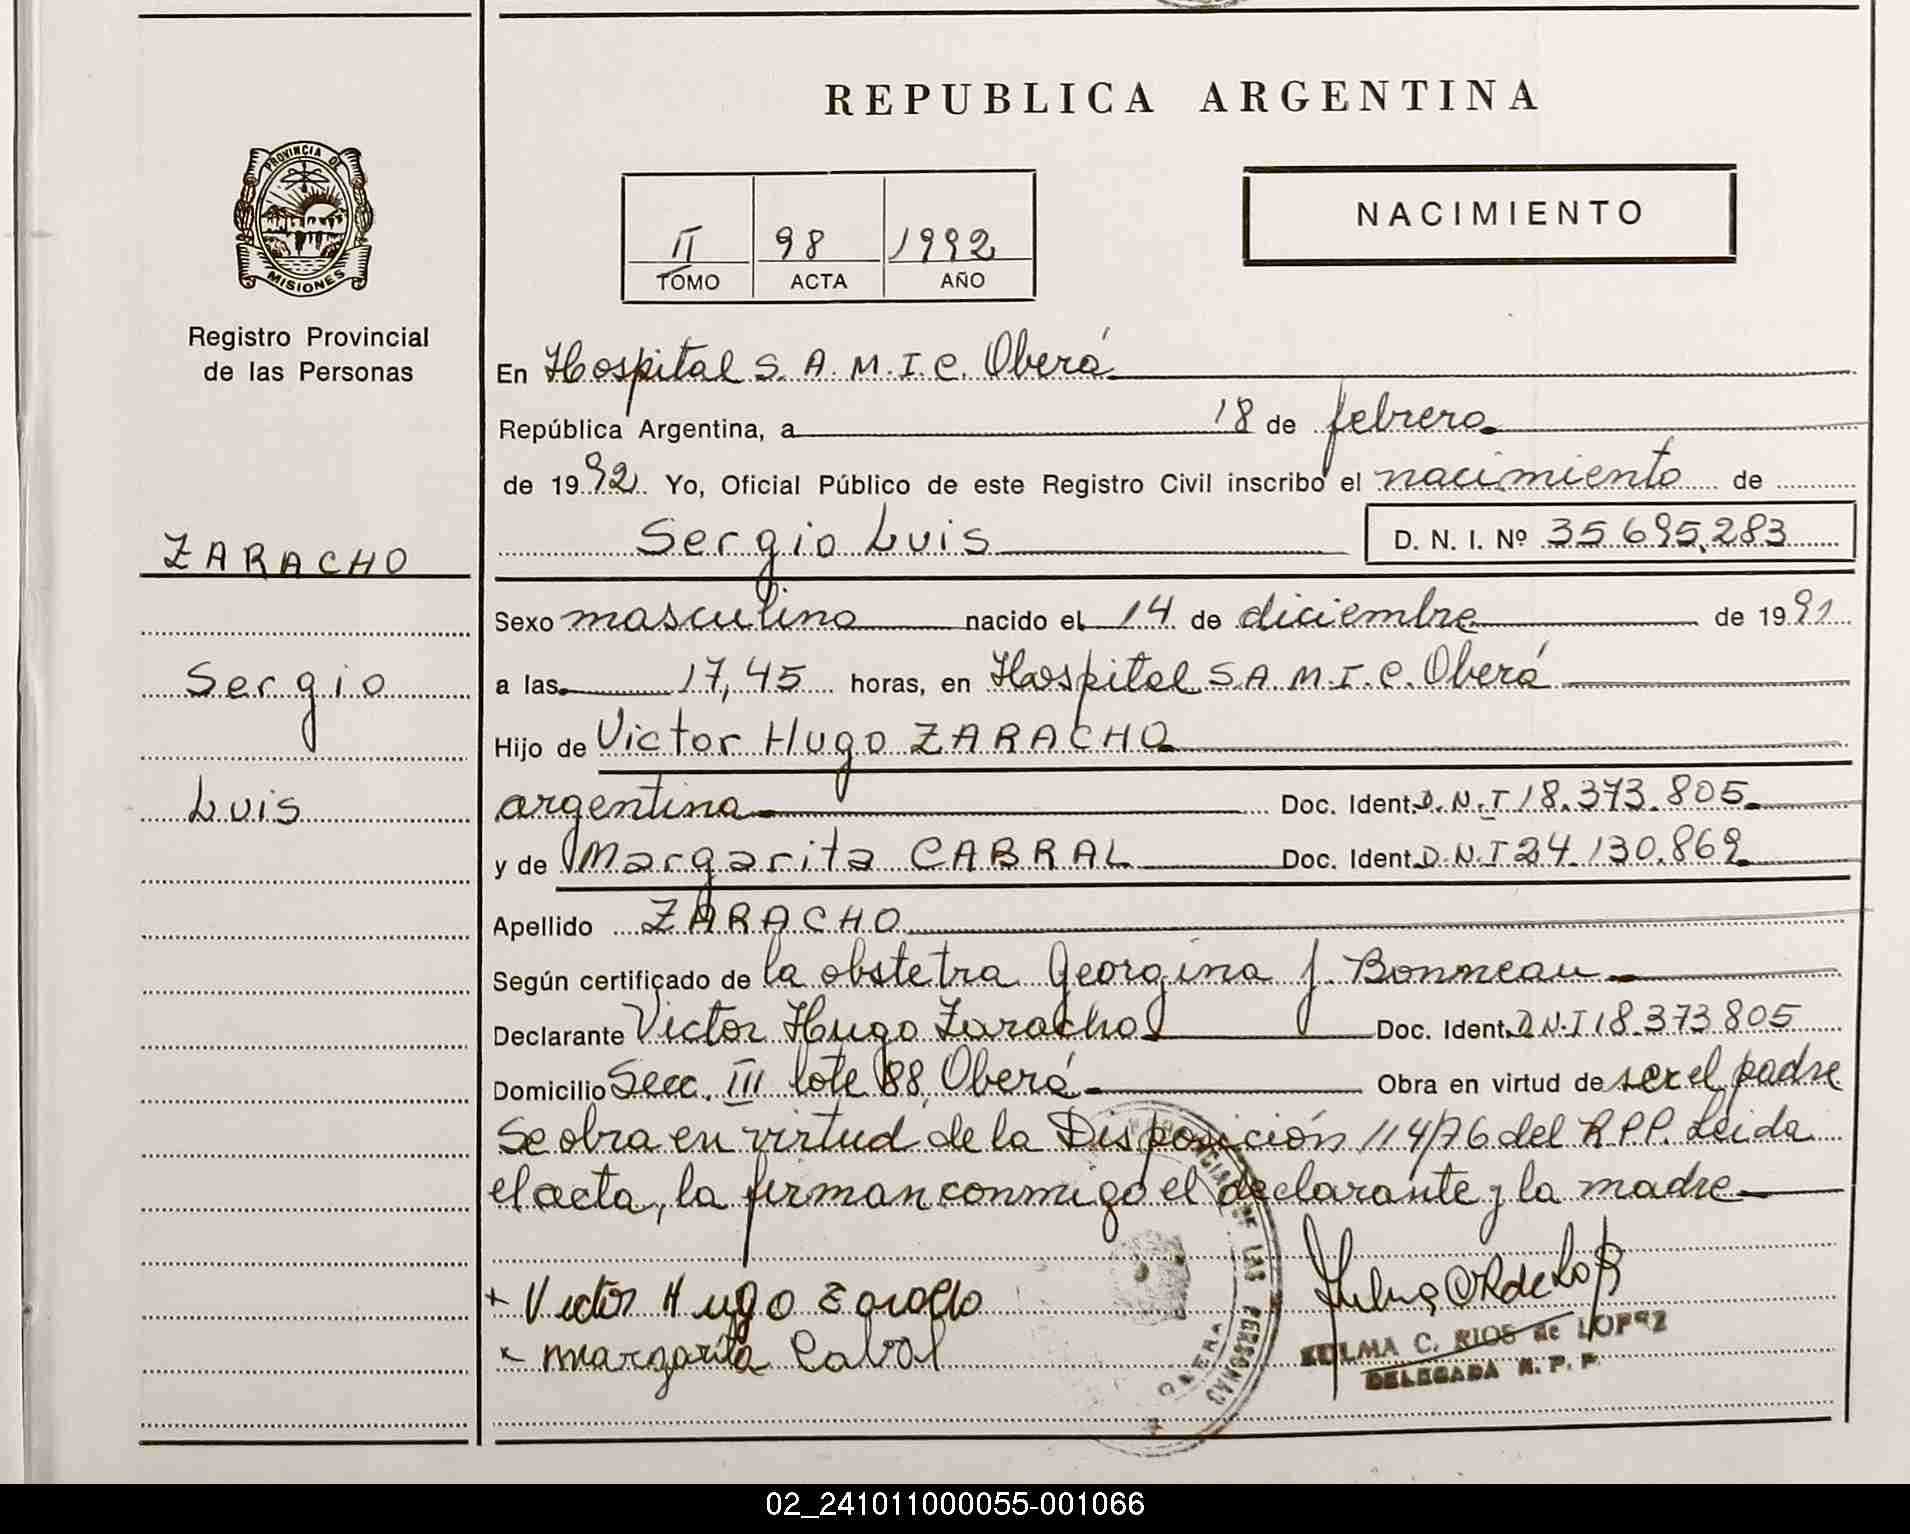 REPUBLICA ARGENTINA
PROVINCIA DE
MISIONES
Registro Provincial
de las Personas
II 98 1992
TOMO ACTA AÑO
NACIMIENTO
ZARACHO
Sergio
Luis
En Hospital S.A.M.I.C. Oberá
República Argentina, a 18 de febrero
de 1992 Yo, Oficial Público de este Registro Civil inscribo el nacimiento de
Sergio Luis D. N. I. Nº 35.695.283
Sexo masculino nacido el 14 de diciembre de 1991
a las 17,45 horas, en Hospital S.A.M.I.C. Oberá
Hijo de Victor Hugo ZARACHO
argentino Doc. Ident. D.N.I 18.373.805
y de Margarita CABRAL Doc. Ident. D.N.I 24.130.869
Apellido ZARACHO
Según certificado de la obstetra Georgina J. Bonneau
Declarante Victor Hugo Zaracho Doc. Ident. D.N.I 18.373.805
Domicilio Secc. III lote 88 Oberá Obra en virtud de ser el padre
Se obra en virtud de la Disposición 114/76 del R.P.P. Leida
el acta, la firman conmigo el declarante y la madre
+ Victor Hugo Zaracho
x margarita Cabral
ZULMA C. RIOS de LOPEZ
DELEGADA R. P. P.
PROVINCIAL DE LAS PERSONAS
OBERA
02_241011000055-001066